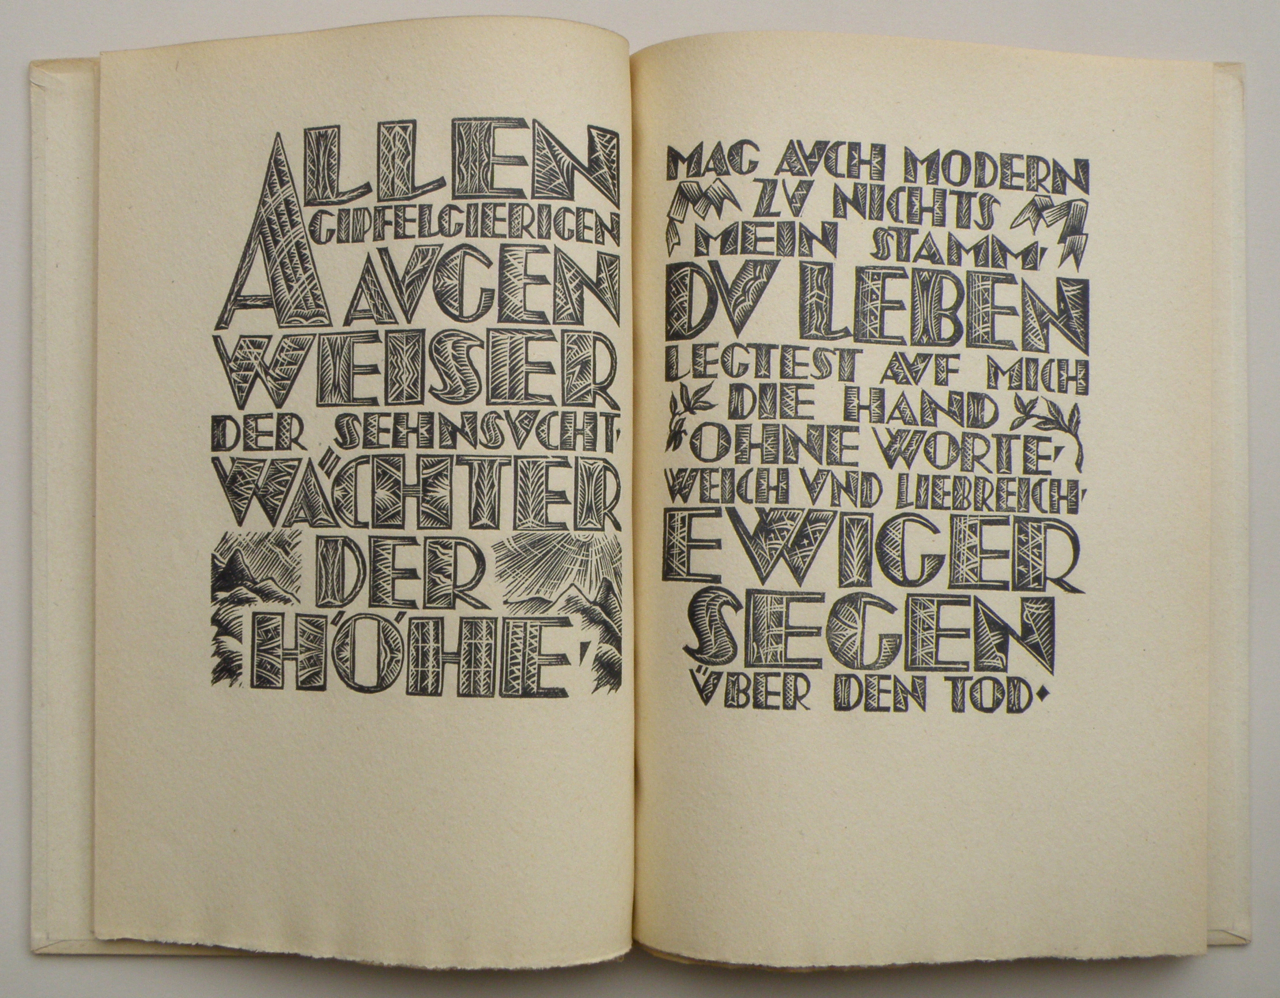 ALLEN
GIPFELGIERIGEN
AVGEN
WEISER
DER SEHNSVCHT,
WÄCHTER
DER
HÖHE,
MAG AVCH MODERN
ZV NICHTS
MEIN STAMM,
DV LEBEN
LEGTEST AVF MICH
DIE HAND
OHNE WORTE,
WEICH VND LIEBREICH,
EWIGER
SEGEN
V̈BER DEN TOD.